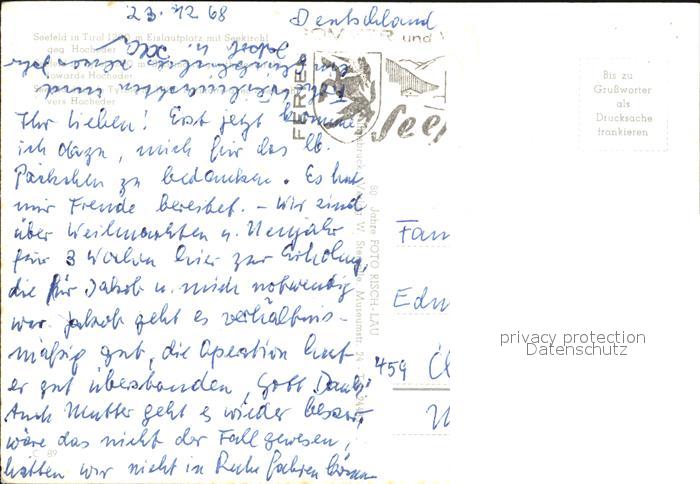 23.12.68
Deutschland
Seefeld in Tirol 1200 m Eislaufplatz mit Seekirchl
geg. Hocheder
towards Hocheder
vers Hocheder
Ihr Lieben! Erst jetzt komme
ich dazu, mich für das lb.
Päckchen zu bedanken. Es hat
mir Freude bereitet. – Wir sind
über Weihnachten u. Neujahr
für 3 Wochen hier zur Erholung,
die für Jakob u. mich notwendig
war. Jakob geht es verhältnis-
mäßig gut, die Operation hat
er gut überstanden, Gott Dank!
Auch Mutter geht es wieder besser,
wäre das nicht der Fall gewesen,
hätten wir nicht in Ruhe fahren können
Fröhliche Weihnachten und
Jakob u.
C 89
80 Jahre FOTO RISCH-LAU
W. Museumstr. 24
FERIEN
SOMMER und
See
Bis zu
Grußworter
als
Drucksache
frankieren
Fam
Edm
459
privacy protection
Datenschutz